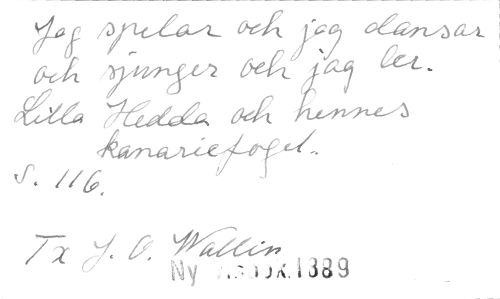 Jag spelar och jag dansar
och sjunger och jag ler.
Lilla Hedda och hennes
kanariefogel.
S. 116.
Tx J. O. Wallin
Ny 1889